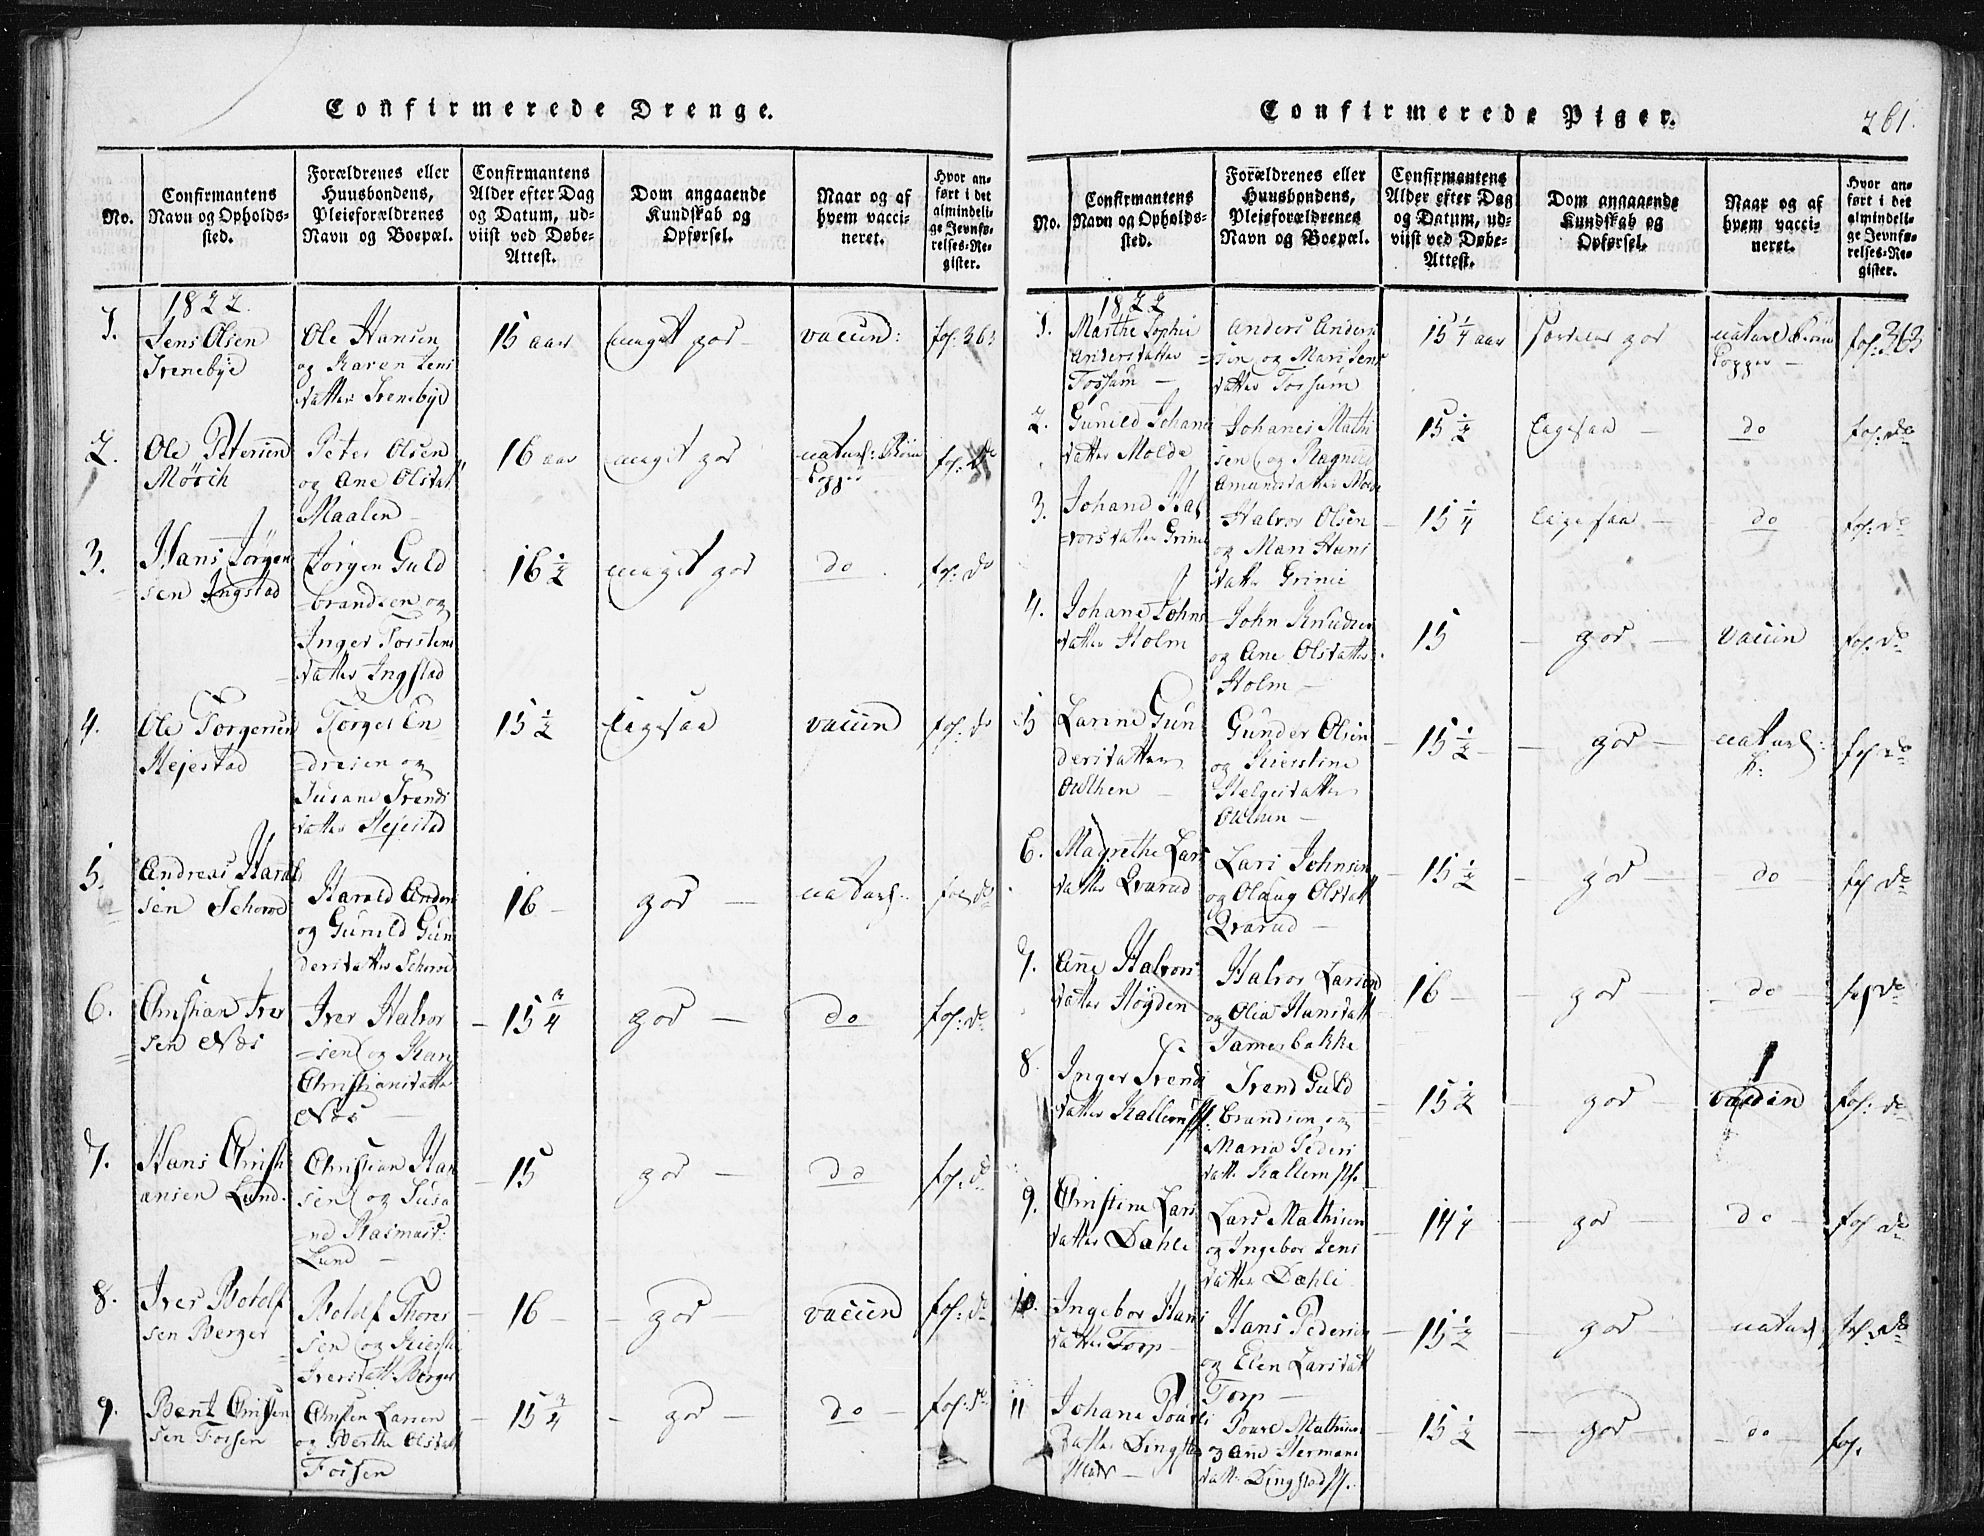 Confirmerede Drenge.
No.
Confirmantens
Navn og Opholds-
sted.
Forældrenes eller
Huusbondens,
Pleieforældrenes
Navn og Boepæl.
Confirmantens
Alder efter Dag
og Datum, ud-
viist ved Døbe-
Attest.
Dom angaaende
Kundskab og
Opførsel.
Naar og af
hvem vacci-
neret.
Hvor an-
ført i det
almindeli-
ge Jevnfø-
relses-Re-
gister.
1822
1.
Jens Olsen
Svenebye
Ole Hansen
og Karen Jens
datter Svenebye
15 aar
meget god
vaccin:
fol. 363
2.
Ole Petersen
Mörch
Peter Olsen
og Ane Olsdat
Maalen
16 aar
meget god
naturl: Börne
Kopper
fol: do
3.
Hans Jörgen
sen Ingstad
Jörgen Guld
brandsen og
Inger Torstens
datter Ingstad
16 1/2
meget god
do
fol: do
4.
Ole Torgersen
Hejestad
Torger En
dresen og
Susane Svends
datter Hejestad
15 1/2
ligesaa
vaccin
fol: do
5.
Andreas Harald
sen
Harald Anders
og Gunild Gun
ders datter
16
god
naturl:
fol do
6.
Christian Iver
sen Næs
Iver Halvor
sen og Kari
Christiansdatter
Næs
15 3/4
god
do
fol: do
7.
Hans Christi
ansen Lund
Christian Han
sen og Susa
ne Rasmusd:
Lund
15
god
do
fol: do
8.
Iver Botolf
sen Berger
Botolf Thores
sen og Kiersti
Iversdatt: Berger
16
god
vaccin
fol: do
9.
Bent Christen
sen Fossen
Christen Larsen
og Berthe Olsdatt
Fossen
15 3/4
god
do
fol: do
Confirmerede Piger.
261.
No.
Confirmantens
Navn og Opholds-
sted.
Forældrenes eller
Huusbondens,
Pleieforældrenes
Navn og Boepæl.
Confirmantens
Alder efter Dag
og Datum, ud-
viist ved Døbe-
Attest.
Dom angaaende
Kundskab og
Opførsel.
Naar og af
hvem vacci-
neret.
Hvor an-
ført i det
almindeli-
ge Jevnfø-
relses-Re-
gister.
1822
1.
Marthe Sophie
Andersdatter
Fossum
Anders Anders
sen og Mari Jens
datter Fossum
15 1/4 aar
god
naturl Börne
Kopper
fol: 363
2.
Gunild Johans
datter Molde
Johanes Mathi
sen og Ragnild
Amundsdatter Molde
15 1/2
ligesaa
do
fol. do
3.
Johane Hal
vorsdatter Grime
Halvor Olsen
og Mari Hans
datter Grime
15 1/4
ligesaa
do
fol: do
4.
Johane Johns
datter Holm
John Knudsen
og Ane Olsdatter
Holm
15
god
vaccin
fol. do
5
Larine Gun
dersdatter
Outhen
Gunder Olsen
og Kierstine
Helgesdatter
Outhen
15 1/2
god
naturl:
K:
fol. do
6.
Magrethe Lars
datter Qvarud
Lars Johnsen
og Oldug Olsdatt
Qvarud
15 1/2
god
do
fol do
7.
Ane Halvors
datter Höyden
Halvor Larsen
og Olea Hansdatt
Damesbakke
16
god
do
fol do
8.
Inger Svends
datter Kallum
Svend Guld
brandsen og
Maria Peders
datt Kallum
15 1/2
god
vaccin
fol: do
9.
Christine Lars
datter Dæhli
Lars Mathisen
og Ingebor Jens
datter Dæhli
14 1/4
god
do
fol do
10.
Ingebor Hans
datter Torp
Hans Pedersen
og Elen Larsdatt
Torp
15 1/2
god
naturl
fol. do
11
Johane Pouls
datter Dingstad
Povel Mathisen
og Ane Hermans
datt: Dingstad
15 1/2
god
do
fol.